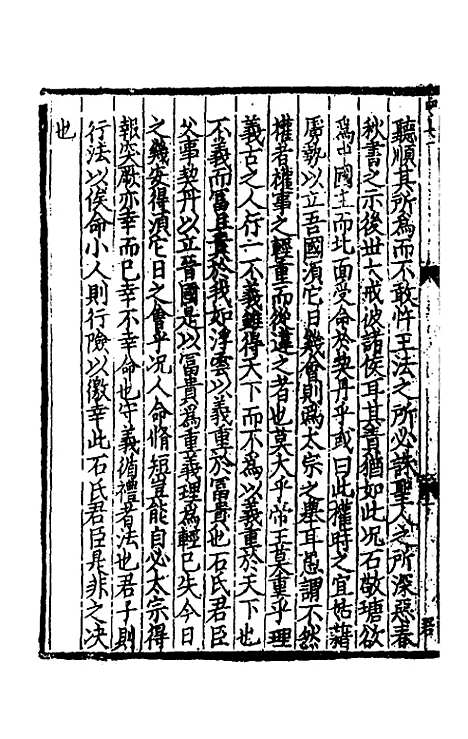 聽順其所為而不敢忤王法之所必誅聖人之所深惡春
秋書之示後世大戒彼諸侯耳其責猶如此况石敬瑭欲
為中國王而北面受命於契丹乎或曰此權時之宜姑藉
虜勢以立吾國湏它日幾會則為太宗之舉耳愚謂不然
權者權事之輕重而後違之者也莫大乎帝王莫重乎理
義古之人行一不義雖得天下而不為以義重於天下也
不義而富且貴於我如浮雲以義重於富貴也石氏君臣
父事契丹以立晉國是以冨貴為重義理為輕已失今日
之幾安得湏它日之會乎况人命脩短豈能自必太宗得
報突厥亦幸而已幸不幸命也守義循禮者法也君子則
行法以俟命小人則行險以徼幸此石氏君臣是非之决
也